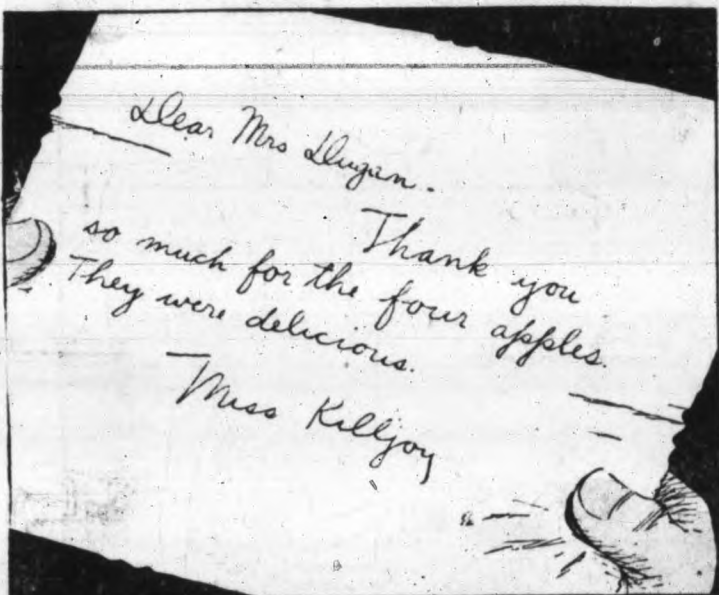 Dear Mrs Dugan.
Thank you
so much for the four apples.
They were delicious.
Miss Killjoy